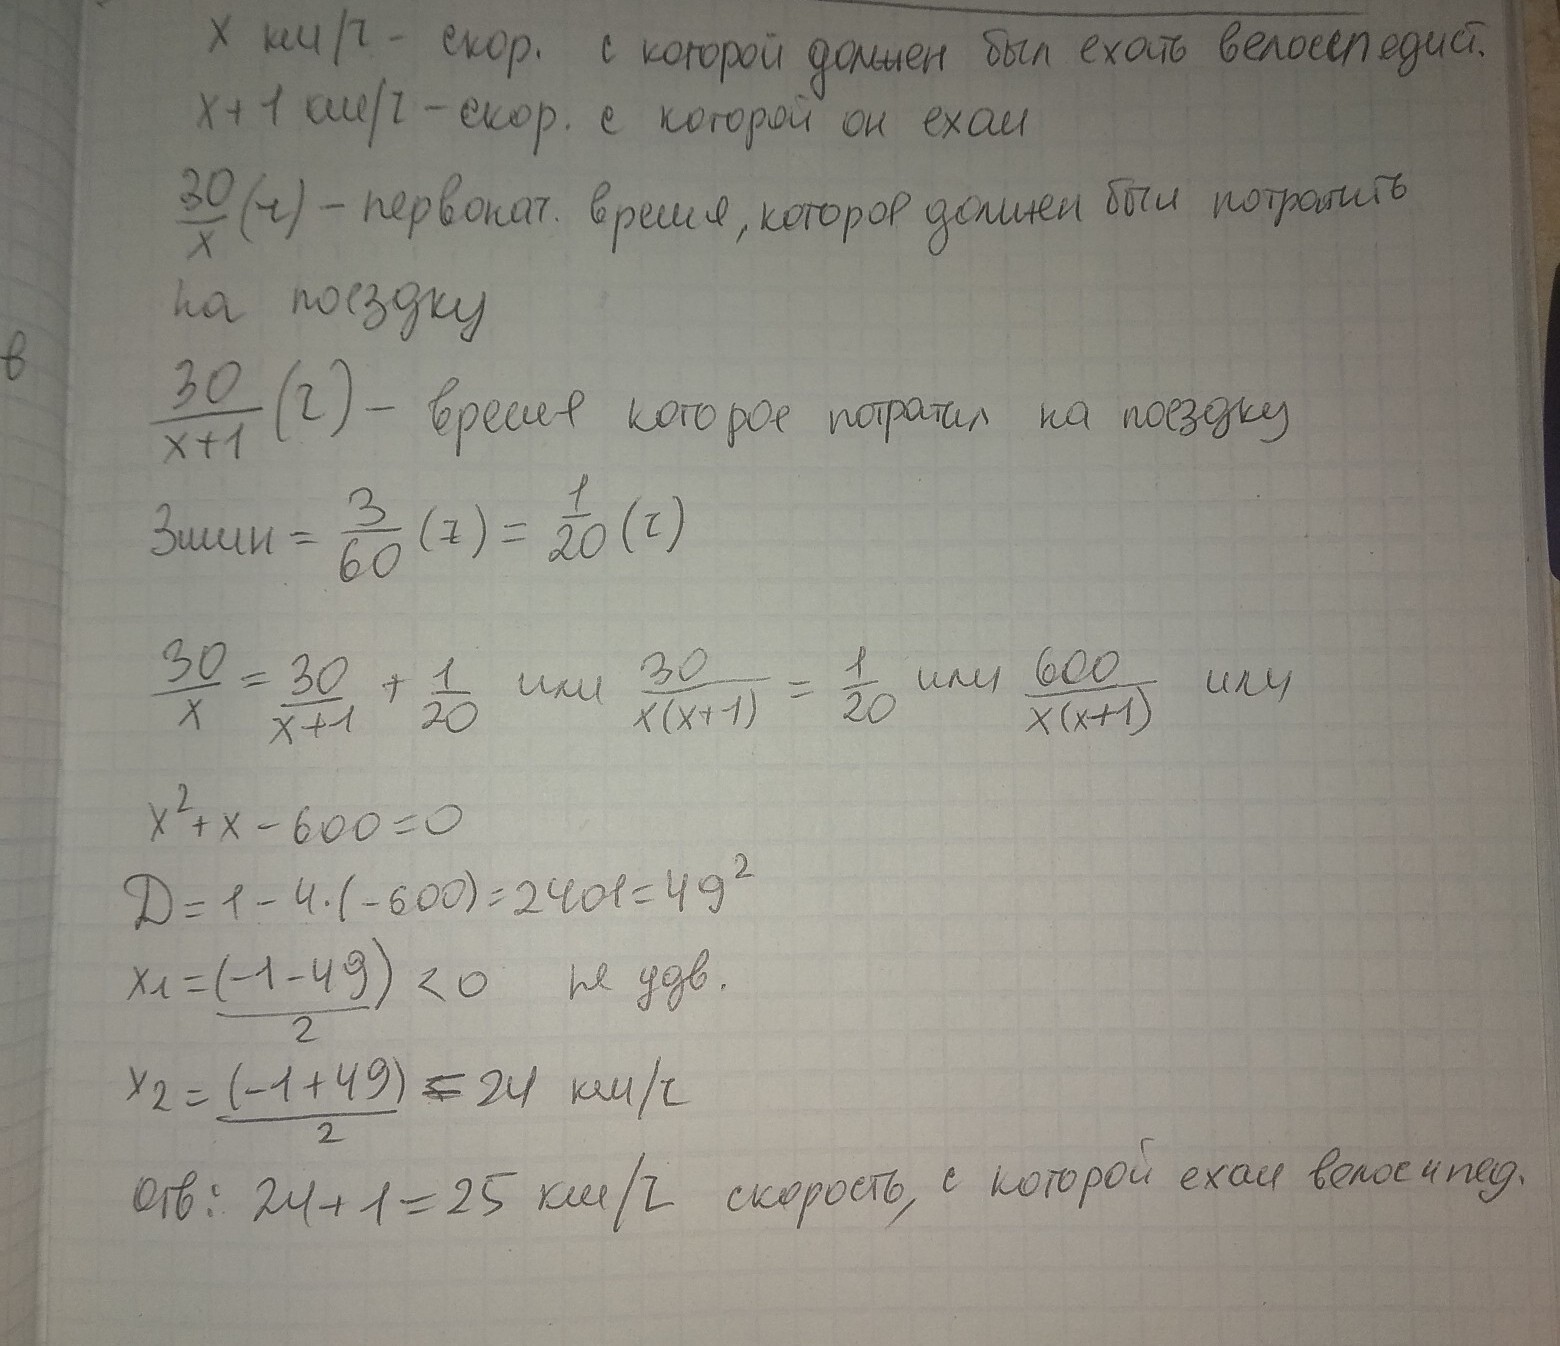 х км/ч - скор. с которой должен был ехать велосепедист.
х+1 км/ч - скор. с которой он ехал
30/х (ч) - первонач. время, которое должен был потратить
на поездку
в
30/х+1 (ч) - время которое потратил на поездку
3мин = 3/60 (ч) = 1/20 (ч)
30/х = 30/х+1 + 1/20 или 30/х(х+1) = 1/20 или 600/х(х+1) или
х²+х-600=0
Д=1-4·(-600)=2401=49²
х1=(-1-49)/2 <0 не удв.
х2=(-1+49)/2 = 24 км/ч
Отв: 24+1=25 км/ч скорость, с которой ехал велосипед.